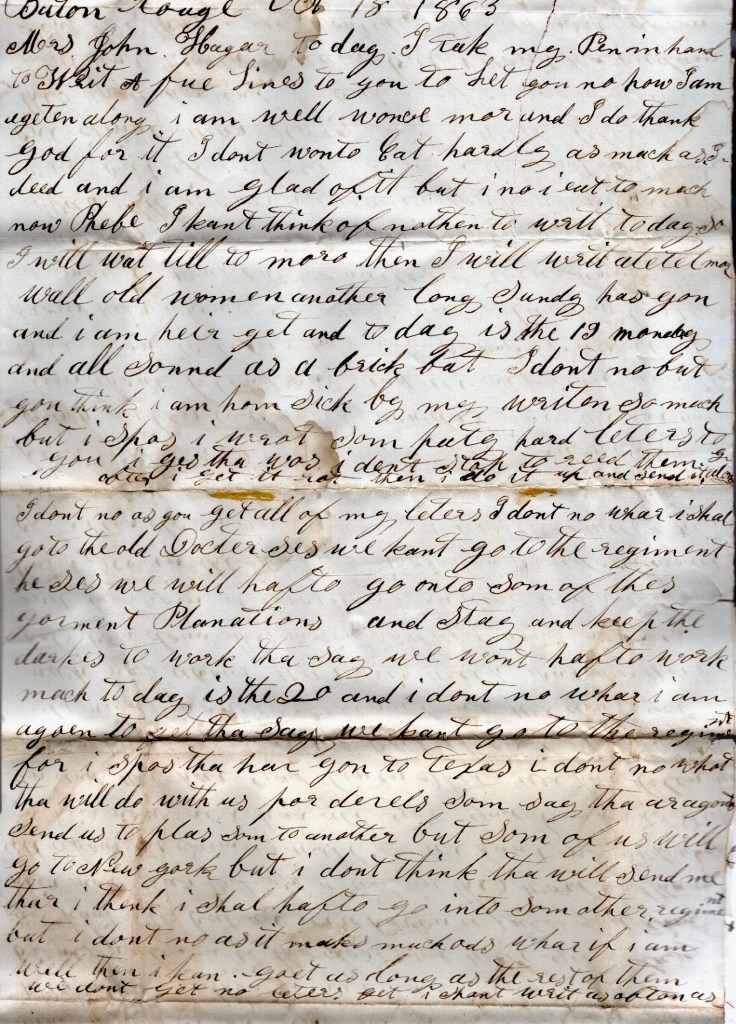 Baton Rouge Oct 18 1863
Mrs John Hagar to day I take my Pen in hand
to Writ A fue lines to you to let you no how I am
ageten along i am well wonce mor and I do thank
god for it I dont wonto Eat hardly as much as I
deed and i am glad of it but i no i eat to much
now Phebe I kant think of nothen to writ to day so
I will wat till to moro then I will writ a letel mor
wall old women another long Sundy has gon
and i am heir yet and to day is the 19 monday
and all sound as a brick but I dont no but
you think i am hom sick by my writen so much
but i spos i wrot som paty hard leters to
you i ges tha was i dont stop to reed them
after i get it rot then i do it up and send it
I dont no as you get all of my leters I dont no whar i shal
go to the old Docter ses we kant go to the regiment
he ses we will hafto go onto som of thes
gorment Planations and stay and keep the
darkes to work tha say we wont hafto work
much to day is the 20 and i dont no whar i am
agoen to yet tha say we kant go to the regiment
for i spos tha har gon to Texas i dont no what
tha will do with us por devels som say tha ar agont
send us to plas som to another but som of us will
go to New york but i dont think tha will send me
thar i think i shal hafto go into som other regiment
but i dont no as it makes much ods whar if i am
well then i kan get as long as the rest of them
we dont get no leters yet i shant writ as obton as